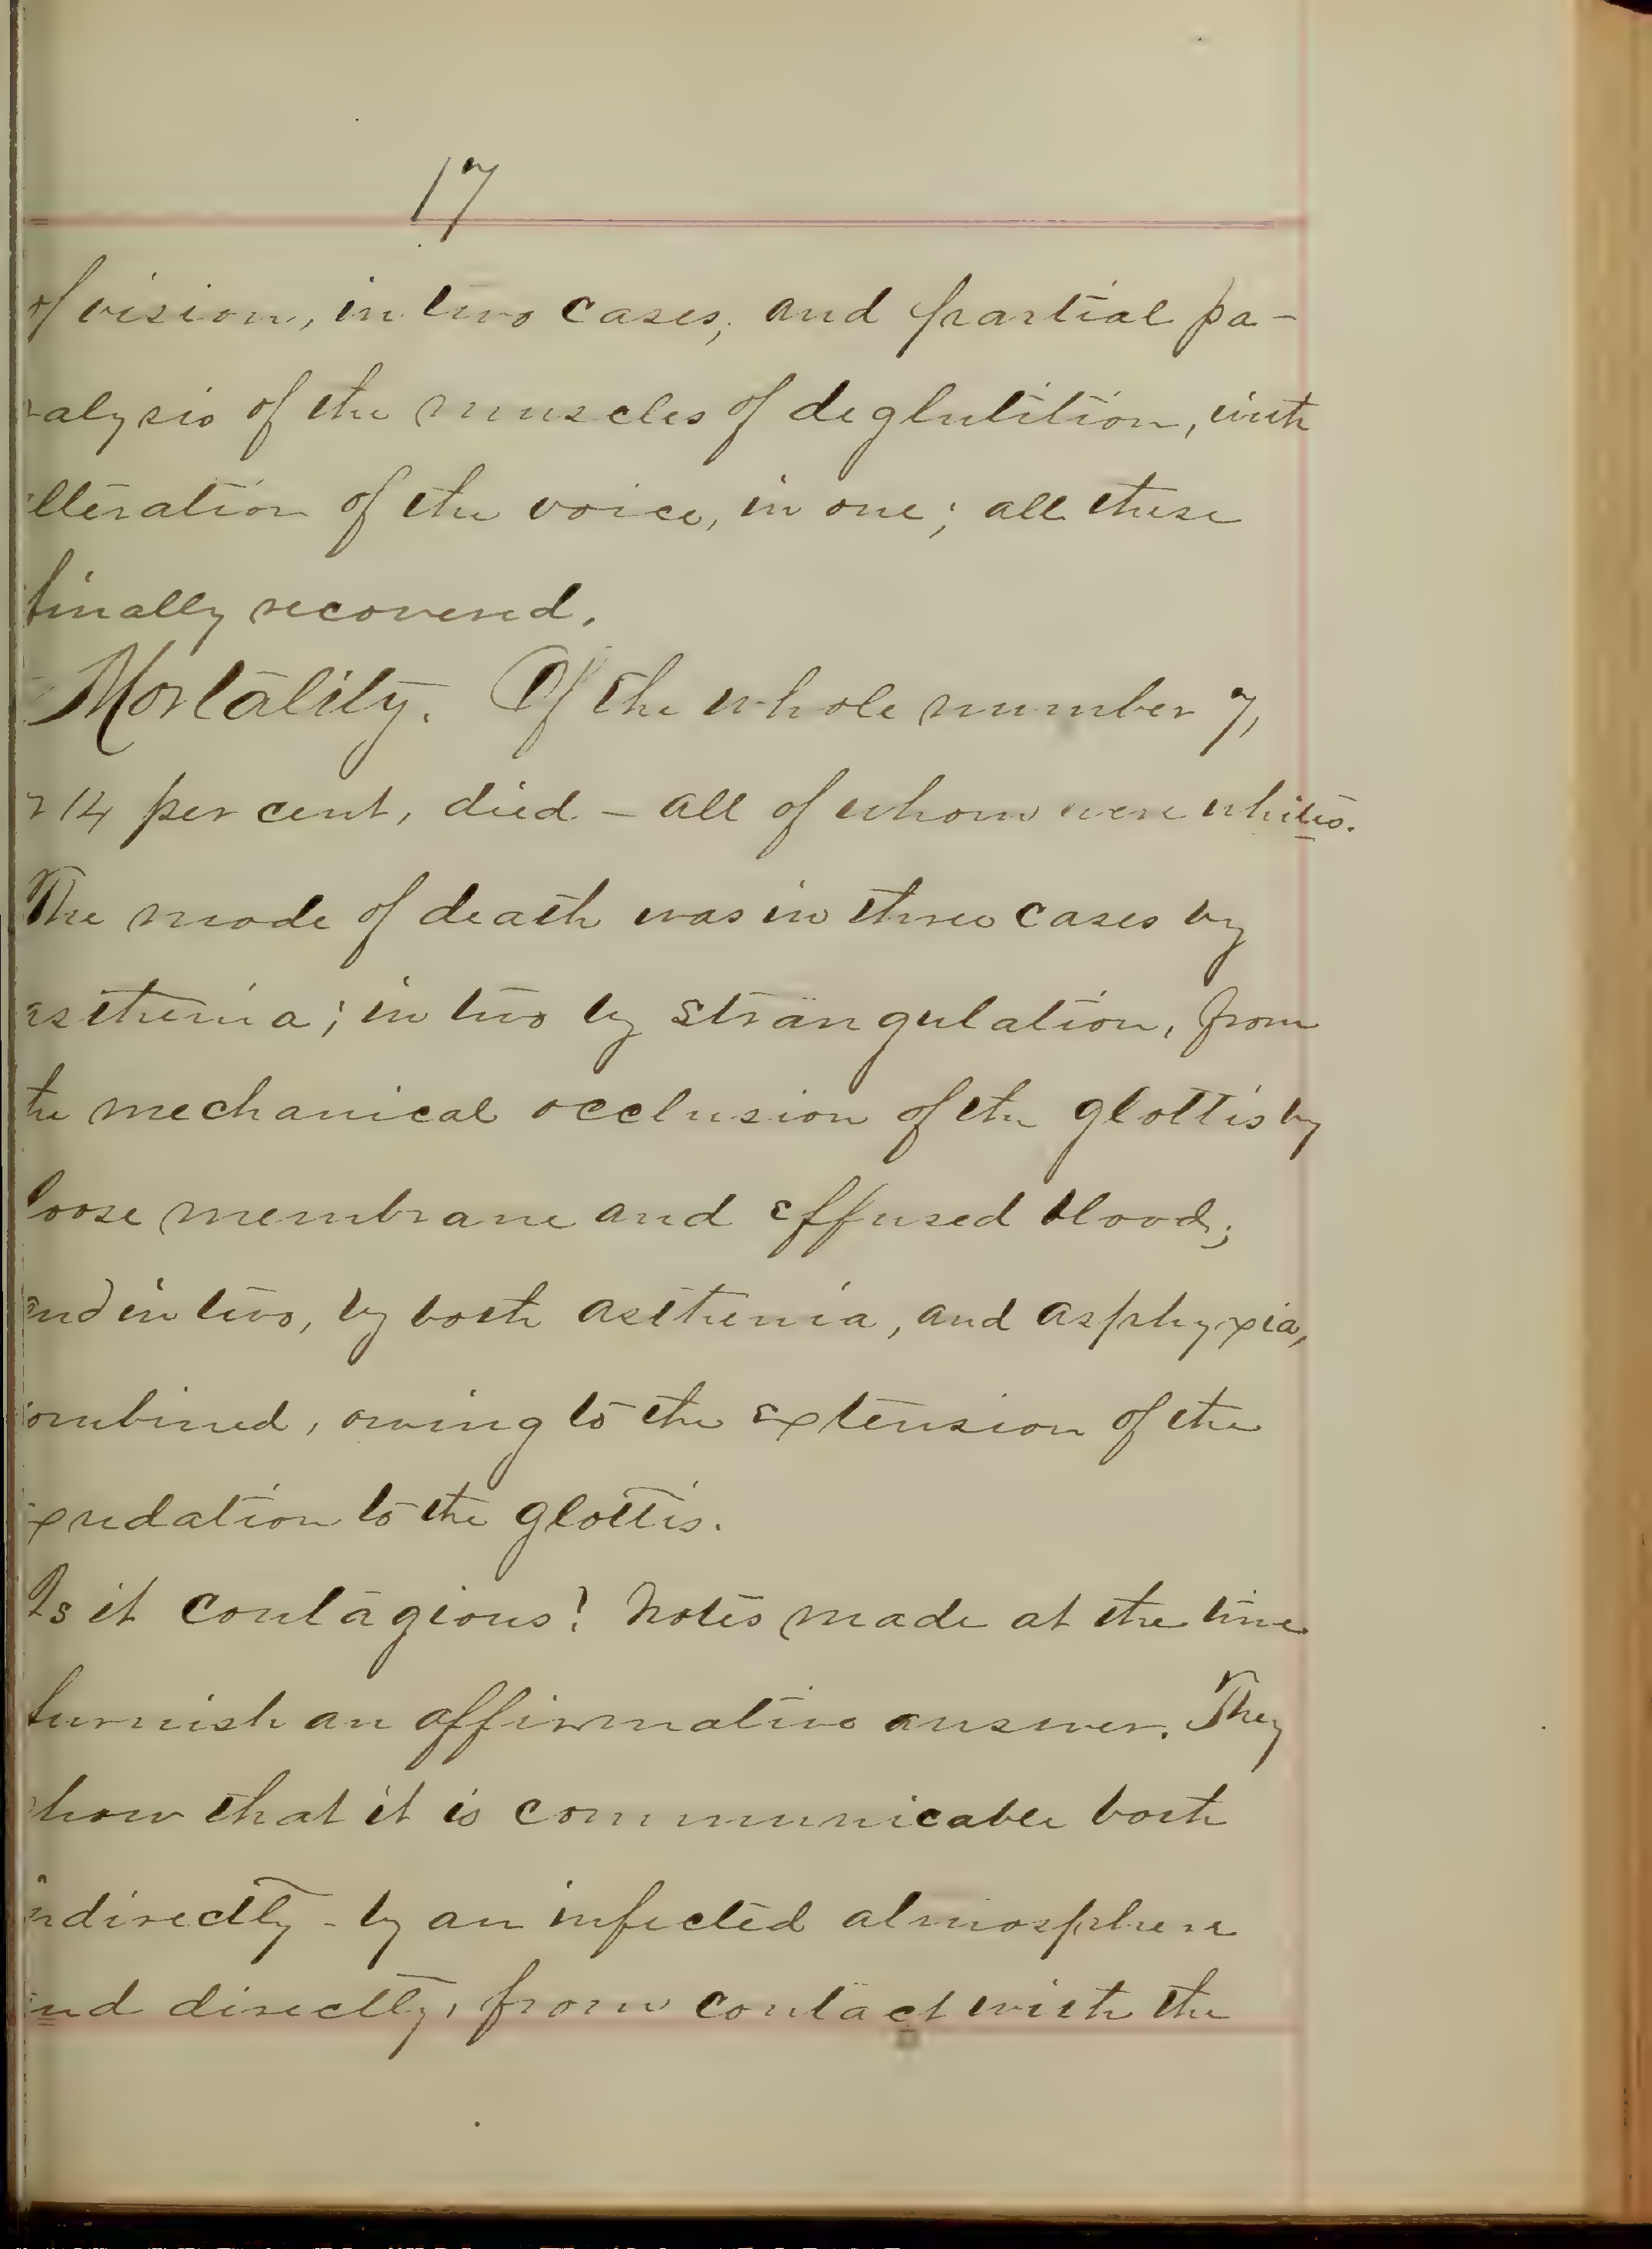 17
of vision, in two cases, and partial pa-
ralysis of the muscles of deglutition, with
alteration of the voice, in one; all these
finally recovered.
Mortality. Of the whole number 7,
or 14 per cent, died - all of whom were whites.
The mode of death was in three cases by
asthenia; in two by strangulation, from
the mechanical occlusion of the glottis by
loose membrane and effused blood;
and in two, by both asthenia, and asphyxia,
combined, owing to the extension of the
exudation to the glottis.
Is it contagious? Notes made at the time
furnish an affirmative answer. They
show that it is communicable both
indirectly - by an infected atmosphere
and directly, from contact with the